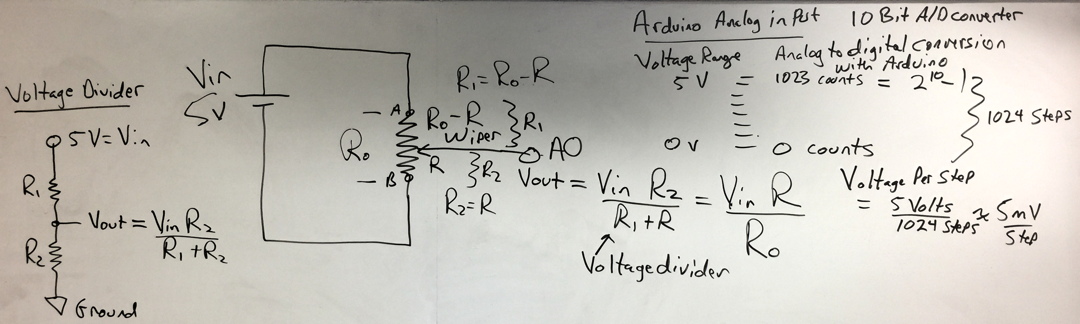 Voltage Divider
5V=Vin
R1
Vout = Vin R2 / R1 + R2
R2
Ground
Vin
5V
R0
A
B
R1 = R0-R
R0-R
R1
Wiper
A0
R
R2
R2=R
Vout = Vin R2 / R1 + R = Vin R / R0
Voltage divider
Arduino Analog in Port 10 Bit A/D converter
Voltage Range Analog to digital conversion
with Arduino
5 V = 1023 counts = 2^10-1
1024 Steps
0 v 0 counts
Voltage Per Step
= 5 Volts / 1024 Steps ≈ 5mV / Step